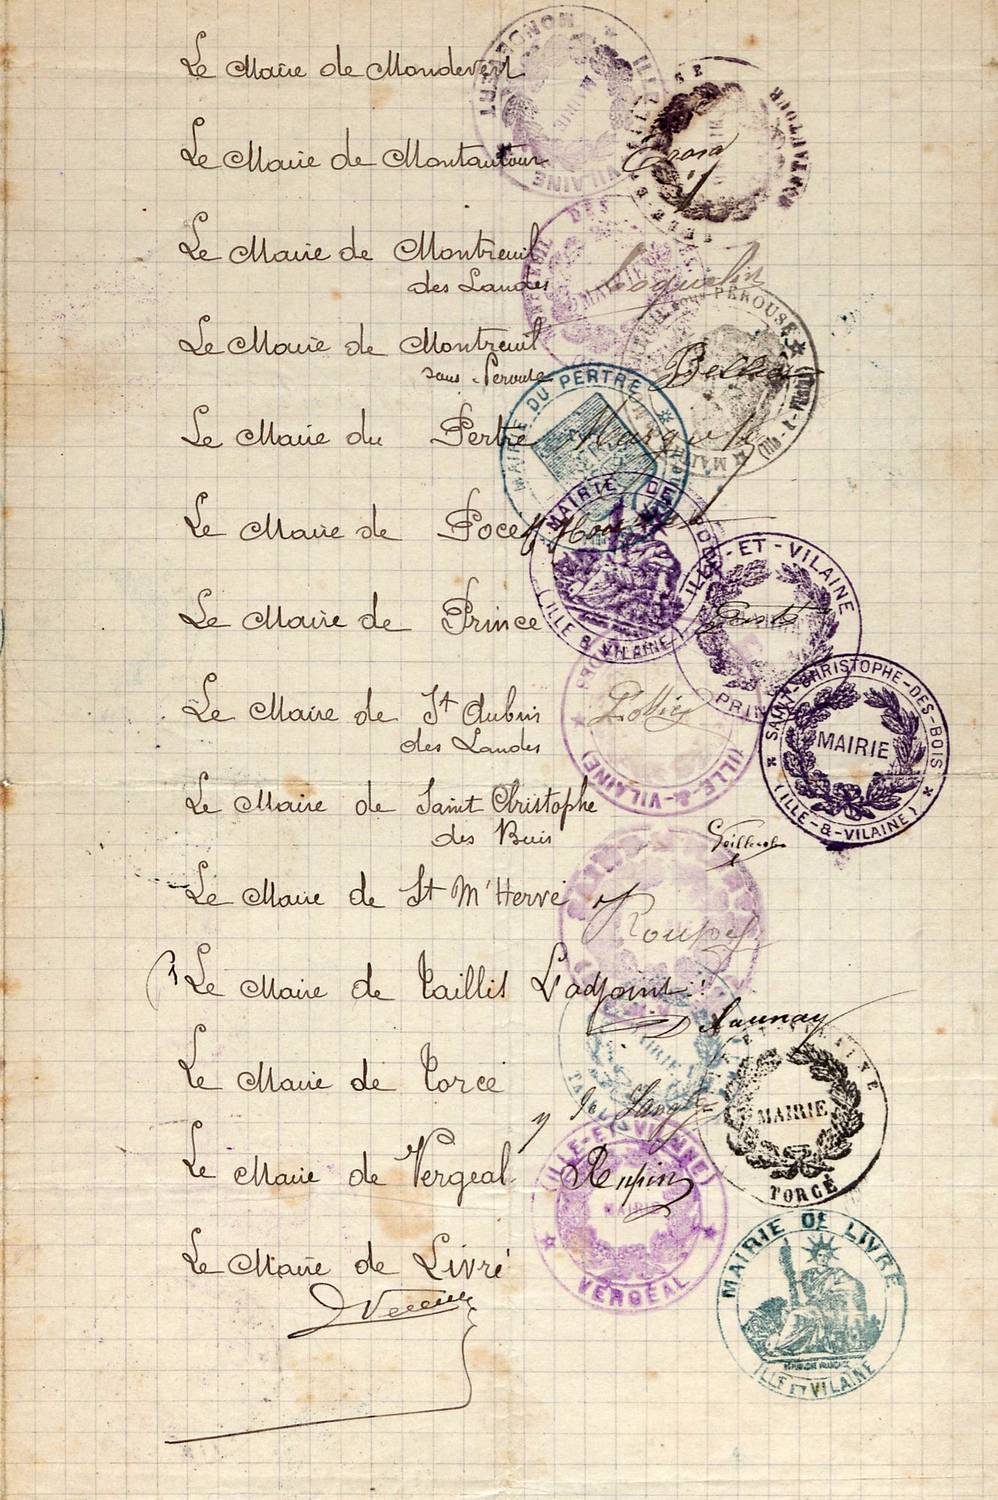 Le Maire de Mondevert
MAIRIE
ILLE
VILAINE
Le Maire de Montautour
MONTAUTOUR
Le Maire de Montreuil
des Landes
DES
MAIRIE
Le Maire de Montreuil
sous Perouse
SOUS PÉROUSE
Bellier
Le Maire du Pertre
MAIRIE DU PERTRE
Le Maire de Pocé
MAIRIE DE
(ILLE & VILAINE)
Le Maire de Prince
ILLE-ET-VILAINE
PRIN
Le Maire de St Aubin
des Landes
(ILLE-&-VILAINE)
SAINT-CHRISTOPHE-DES-BOIS
MAIRIE
(ILLE-&-VILAINE)
Le Maire de Saint Christophe
des Bois
Le Maire de St M'Hervé
Le Maire de Taillis L'adjoint
Launay
MAIRIE
Le Maire de Torcé
MAIRIE
TORCÉ
Le Maire de Vergeal Rupin
(ILLE-ET-VILAINE)
MAIRIE
VERGÉAL
Le Maire de Livré
MAIRIE DE LIVRÉ
RÉPUBLIQUE FRANÇAISE
ILLE ET VILAINE